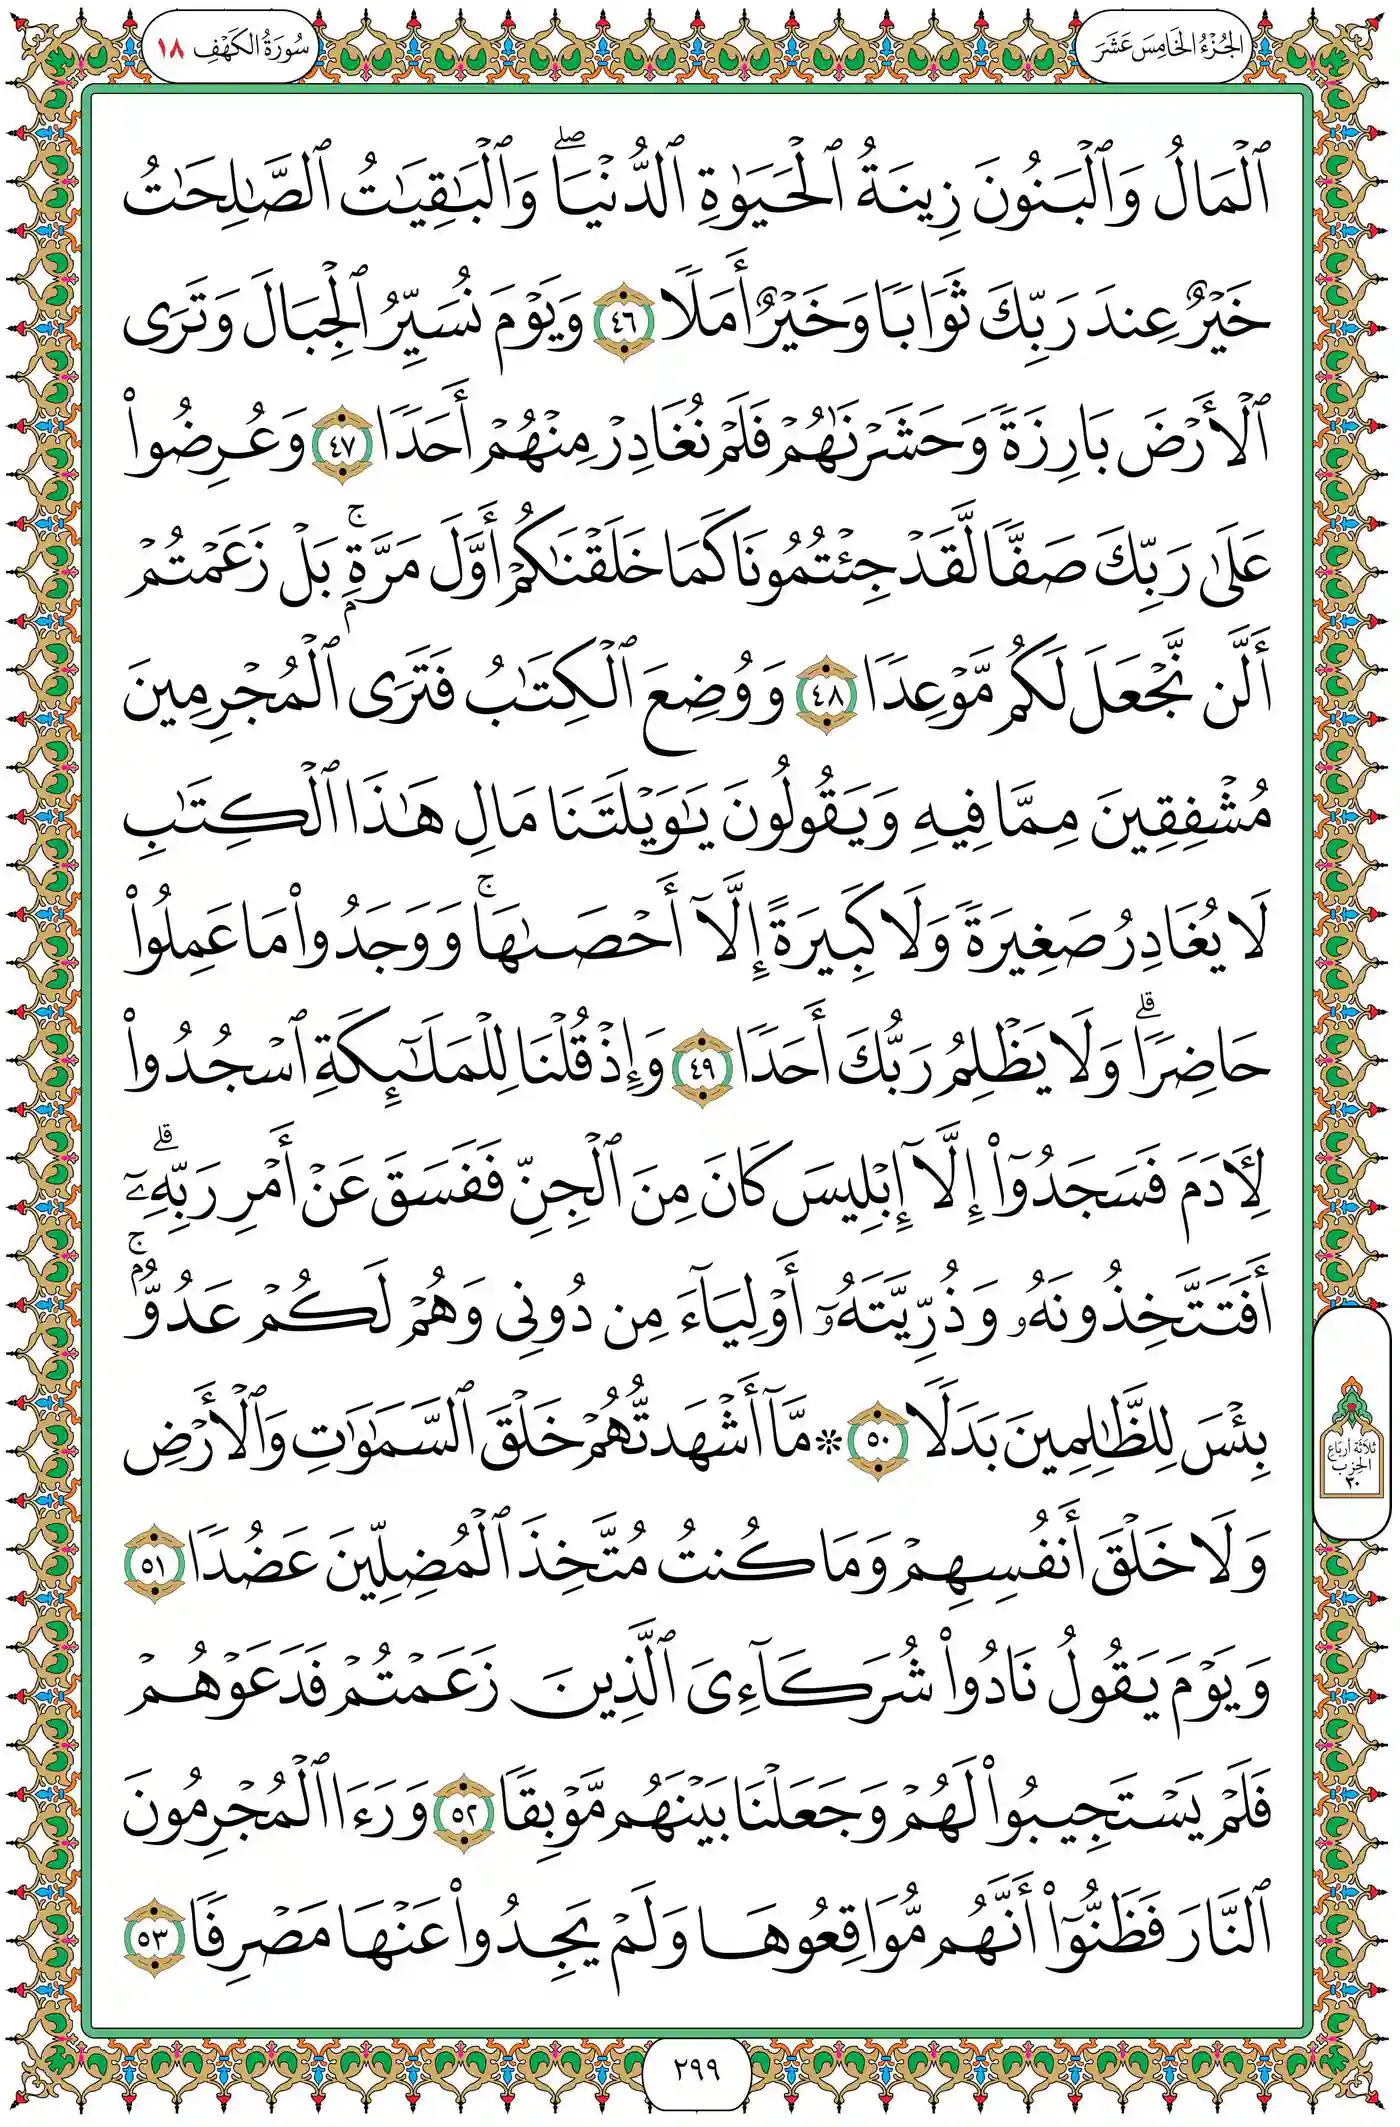 الجُزْءُ الخَامِسَ عَشَرَ
سُورَةُ الكَهْفِ ١٨
ٱلْمَالُ وَٱلْبَنُونَ زِينَةُ ٱلْحَيَوٰةِ ٱلدُّنْيَاۖ وَٱلْبَٰقِيَٰتُ ٱلصَّٰلِحَٰتُ
خَيْرٌ عِندَ رَبِّكَ ثَوَابًا وَخَيْرٌ أَمَلًا ٤٦ وَيَوْمَ نُسَيِّرُ ٱلْجِبَالَ وَتَرَى
ٱلْأَرْضَ بَارِزَةً وَحَشَرْنَٰهُمْ فَلَمْ نُغَادِرْ مِنْهُمْ أَحَدًا ٤٧ وَعُرِضُوا۟
عَلَىٰ رَبِّكَ صَفًّا لَّقَدْ جِئْتُمُونَا كَمَا خَلَقْنَٰكُمْ أَوَّلَ مَرَّةِۭۚ بَلْ زَعَمْتُمْ
أَلَّن نَّجْعَلَ لَكُم مَّوْعِدًا ٤٨ وَوُضِعَ ٱلْكِتَٰبُ فَتَرَى ٱلْمُجْرِمِينَ
مُشْفِقِينَ مِمَّا فِيهِ وَيَقُولُونَ يَٰوَيْلَتَنَا مَالِ هَٰذَا ٱلْكِتَٰبِ
لَا يُغَادِرُ صَغِيرَةً وَلَا كَبِيرَةً إِلَّآ أَحْصَىٰهَاۚ وَوَجَدُوا۟ مَا عَمِلُوا۟
حَاضِرًاۗ وَلَا يَظْلِمُ رَبُّكَ أَحَدًا ٤٩ وَإِذْ قُلْنَا لِلْمَلَٰٓئِكَةِ ٱسْجُدُوا۟
لِـَٔادَمَ فَسَجَدُوٓا۟ إِلَّآ إِبْلِيسَ كَانَ مِنَ ٱلْجِنِّ فَفَسَقَ عَنْ أَمْرِ رَبِّهِۦٓۗ
أَفَتَتَّخِذُونَهُۥ وَذُرِّيَّتَهُۥٓ أَوْلِيَآءَ مِن دُونِى وَهُمْ لَكُمْ عَدُوُّۢۚ
بِئْسَ لِلظَّٰلِمِينَ بَدَلًا ٥٠ ۞ مَّآ أَشْهَدتُّهُمْ خَلْقَ ٱلسَّمَٰوَٰتِ وَٱلْأَرْضِ
وَلَا خَلْقَ أَنفُسِهِمْ وَمَا كُنتُ مُتَّخِذَ ٱلْمُضِلِّينَ عَضُدًا ٥١
وَيَوْمَ يَقُولُ نَادُوا۟ شُرَكَآءِىَ ٱلَّذِينَ زَعَمْتُمْ فَدَعَوْهُمْ
فَلَمْ يَسْتَجِيبُوا۟ لَهُمْ وَجَعَلْنَا بَيْنَهُم مَّوْبِقًا ٥٢ وَرَءَا ٱلْمُجْرِمُونَ
ٱلنَّارَ فَظَنُّوٓا۟ أَنَّهُم مُّوَاقِعُوهَا وَلَمْ يَجِدُوا۟ عَنْهَا مَصْرِفًا ٥٣
ثلاثة أرباع
الحزب
٣٠
٢٩٩